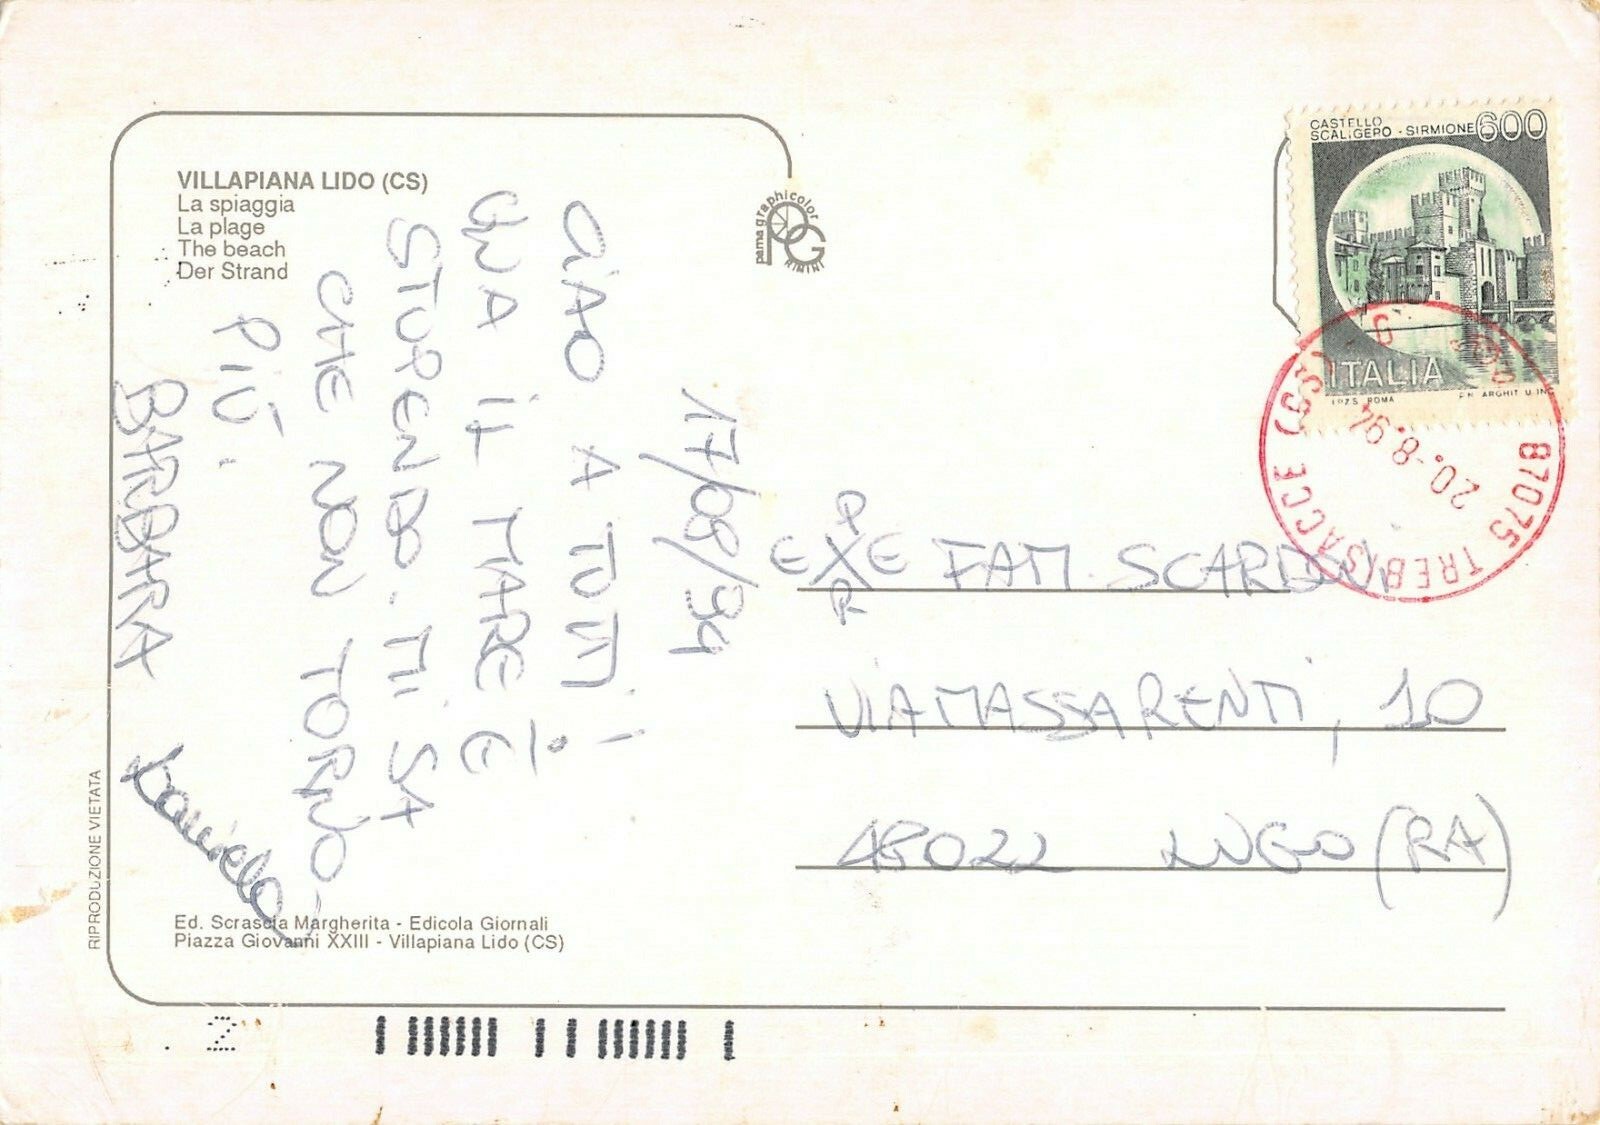 VILLAPIANA LIDO (CS)
La spiaggia
La plage
The beach
Der Strand
pama graphicolor
PG
RIMINI
CASTELLO
SCALIGERO - SIRMIONE 600
ITALIA
I.P.Z.S. ROMA
87075 TREBISACCE (CS)
20.-8.94
17/08/94
CIAO A TUTTI!
QUA IL MARE È
STUPENDO. MI SA
CHE NON TORNO
PIÙ.
BARBARA
Daniela
FAM. SCARDOVI
VIA MASSARENTI, 10
48022 LUGO (RA)
RIPRODUZIONE VIETATA
Ed. Scrascia Margherita - Edicola Giornali
Piazza Giovanni XXIII - Villapiana Lido (CS)
2